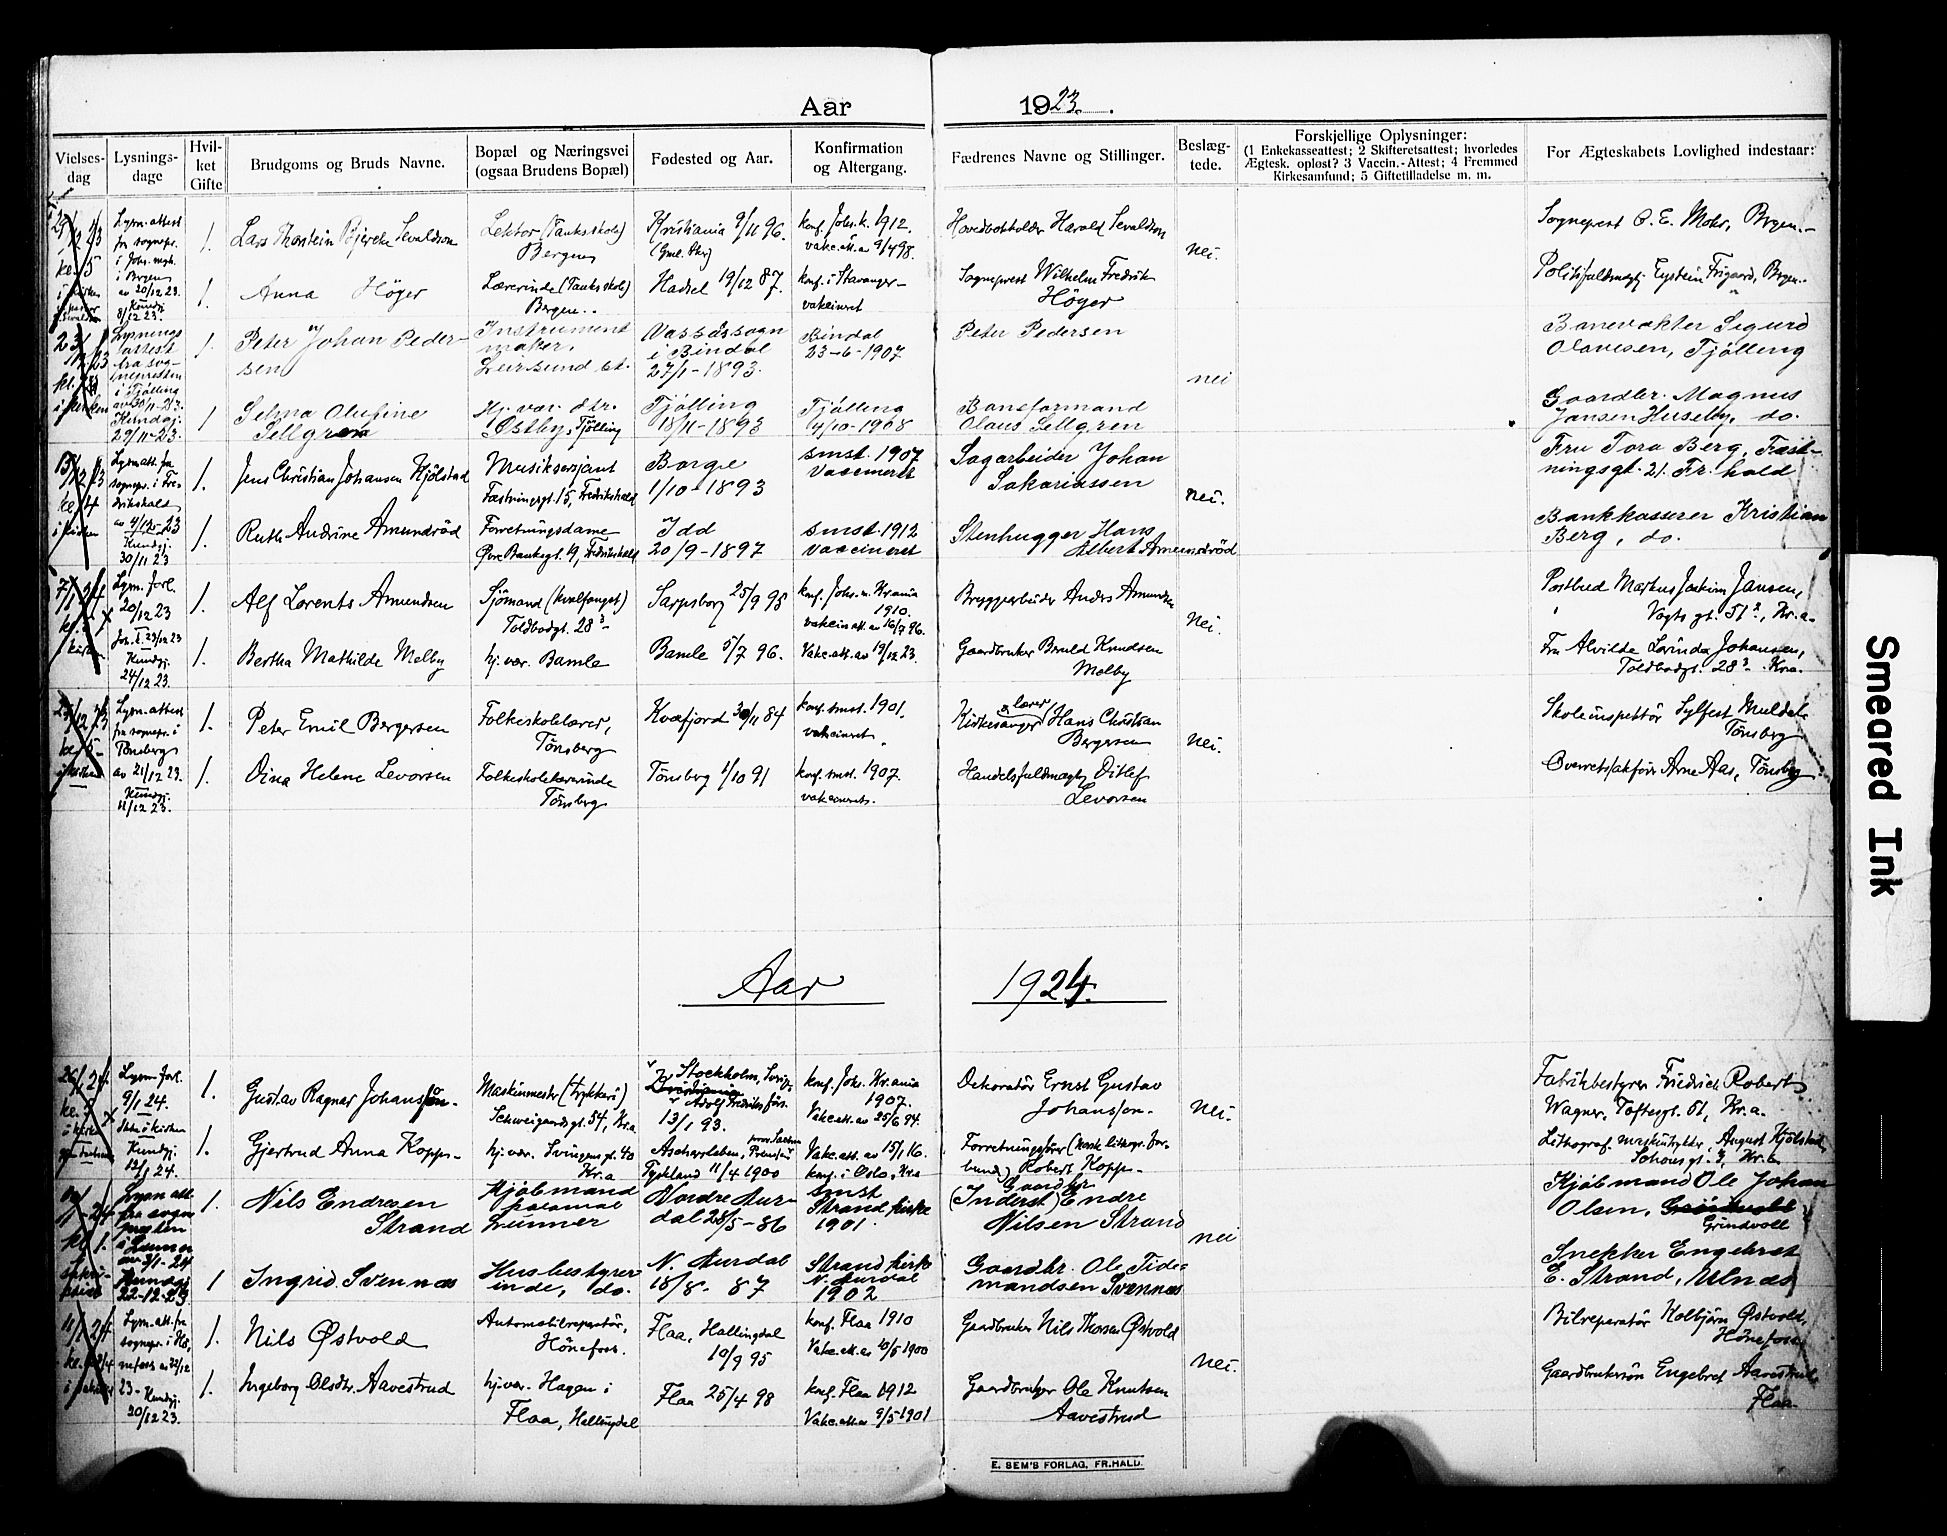 Aar 1923.
Vielses-
dag
Lysnings-
dage
Hvil-
ket
Gifte
Brudgoms og Bruds Navne.
Bopæl og Næringsvei
(ogsaa Brudens Bopæl)
Fødested og Aar.
Konfirmation
og Altergang.
Fædrenes Navne og Stillinger.
Beslæg-
tede.
Forskjellige Oplysninger:
(1 Enkekasseattest; 2 Skifteretsattest; hvorledes
Ægtesk. oplost? 3 Vaccin.-Attest; 4 Fremmed
Kirkesamfund; 5 Giftetilladelse m. m.
For Ægteskabets Lovlighed indestaar:
Lysn. attest
fra sognepr.
i Bergen
av 20/12 23.
Kundgj.
8/12 23.
1.
Lars Thorstein Bjercke Sevaldson
Lektor (Tanks skole)
Bergen
Kristiania 9/11 96.
konf. Johs. k. 1912.
vakc. att. av 9/4 98.
Hovedbokholder Harald Sevaldson
nei.
Sogneprest C. E. Mohr, Bergen.
1.
Anna Höyer
Lærerinde (Tanks skole)
Bergen..
Hadsel 19/12 87.
konf. i Stavanger
vakcineret
Sogneprest Wilhelm Fredrik
Höyer
Politifuldmægtig Eystein Frigaard, Bergen.
Lysnings
attest
fra sog-
nepresten
i Tjölling
av 30/11-23.
Kundgj.
29/11-23.
1.
Peter Johan Peder-
sen
Instrument
maker,
Leirsund st.
Vassåssogn
i Bindal
27/1-1893.
Bindal
23-6-1907.
Peter Pedersen
nei
Banevokter Sigurd
Olavesen, Tjölling
1
Selma Olufine
Sellgren
Hj. vær. &tr.
Østby, Tjölling
Tjölling
18/11-1893
Tjölling
4/10-1908
Baneformand
Olaus Sellgren
Gaardbr. Magnus
Jansen Huseby, do.
Lysn. att. fra
sognepr. i Fre-
drikshald
av 4/12-23
Kundgj.
30/11 23
1.
Jens Christian Johansen Kjölstad
Musiksersjant
Fæstningsgt. 15, Fredrikshald
Borge
1/10-1893
smst. 1907
Vaccineret
Sagarbeider Johan
Sakariassen
nei.
Fru Tora Berg, Fæst-
ningsgt. 21. Fr.hald
1.
Ruth Andrine Amundröd
Forretningsdame
Øvre Bankegt. 9, Fredrikshald
Idd
20/9-1897
smst. 1912
vaccineret
Stenhugger Hans
Albert Amundröd
Bankkasserer Kristian
Berg, do.
Lysn. forl.
20/12 23
Joh. I. 23/12 23
Kundgj.
24/12 23.
1.
Alf Lorents Amundsen
Sjömand (hvalfanget)
Toldbodgt. 28³
Sarpsborg 25/9 98
konf. Johs. m. Kr.ania
1910.
vakcin att. av 16/7 96.
Bryggerbuder Anders Amundsen
nei.
Postbud Markus Joakim Jansen,
Vogtsgt. 51², Kr.a.
1.
Bertha Mathilde Melby
hj. vær. Bamle
Bamle 5/7 96.
Vakc. att. av 19/12 23.
Gaardbruker Beruld Knudsen
Melby
Fru Alvilde Lovinda Johansen,
Toldbodgt. 28³ Kr.a.
Lysn. attest
fra sognepr. i
Tönsberg
av 21/12 23.
Kundgj.
11/12 23.
1.
Peter Emil Bergersen
Folkeskolelærer,
Tönsberg
Kvæfjord 30/11 84
konf. smst. 1901.
vakcineret
Kirkesanger & lærer Hans Christian
Bergersen
nei.
Skoleinspektör Sylfest Muldal
Tönsberg
1.
Dina Helene Levorsen
Folkeskolelærerinde
Tönsberg
Tönsberg 1/10 91
konf. smst. 1907.
vakcineret.
Handelsfuldmægtig Ditlef
Levorsen
Overretssakförer Arne Aas, Tönsberg
Aar 1924.
Lysn. forl.
9/1 24.
Kundgj.
12/1 24.
1.
Gustav Ragnar Johansson.
Maskinmester (trykkeri)
Schweigaardsgt. 54, Kr.a
Stockholm, Sverige
Kristiania
Adolf Fredriks förs.
13/1 93.
konf. Johs. Kr.ania
1907.
Vakc. att. av 25/6 94.
Dekoratör Ernst Gustav
Johansson.
nei.
Fabrikbestyrer Friedrich Robert
Wagner, Toftesgt. 51, Kr.a.
1.
Gjertrud Anna Kopps
hj. vær. Svingensgt. 40
Kr.a
Aschersleben, prov. Sachsen Preussen
Tyskland 11/4 1900
Vakc. att. av 15/1 16.
konf. i Oslo, Kr.a
Forretningsförer (norsk litogr. for-
bund) Robert Kopp
Litograf. maskintrykker August Kjölstad
Schousgt. 3, Kr.a
Lysn att
fra sogne
presten
i Lunner
av 3/1-24
Kundgj
22-12-23
1.
Nils Endresen
Strand
Kjöbmand
Lunner
Nordre Aur-
dal 28/5-86
smst
Strand kirke
1901.
(Inderst) Gaardbr Endre
Nilsen Strand
nei
Kjöbmand Ole Johan
Olsen, Grindvoll
1
Ingrid Svennæs
Husbestyrer
inde, do.
N. Aurdal
18/8- 87
Strand kirke
N. Aurdal
1902
Gaardbr. Ole Tide-
mandsen Svennæs
Snekker Engebret
E. Strand, Ulnæs
Lysn. att. fra
sognepr. i Hö-
nefoss av 22/12
23- Kundgj.
20/12 23.
1.
Nils Østvold
Automobilreparatör,
Hönefoss.
Flaa, Hallingdal
10/9 95
konf. Flaa 1910
Vakc. att. av 10/5 1900
Gaardbruker Nils Thorsen Østvold
nei.
Bilreparatör Kolbjörn Østvold,
Hönefoss
1.
Ingeborg Olsdtr. Aavestrud
hj. vær. Hagen i
Flaa, Hallingdal
Flaa 25/4 98
konf. Flaa 1912
Vakc. att. av 9/5 1901
Gaardbruker Ole Knutsen
Aavestrud
Gaardbrukersön Engebret Aavestrud
Flaa
E. SEM'S FORLAG, FR.HALD.
Smeared Ink